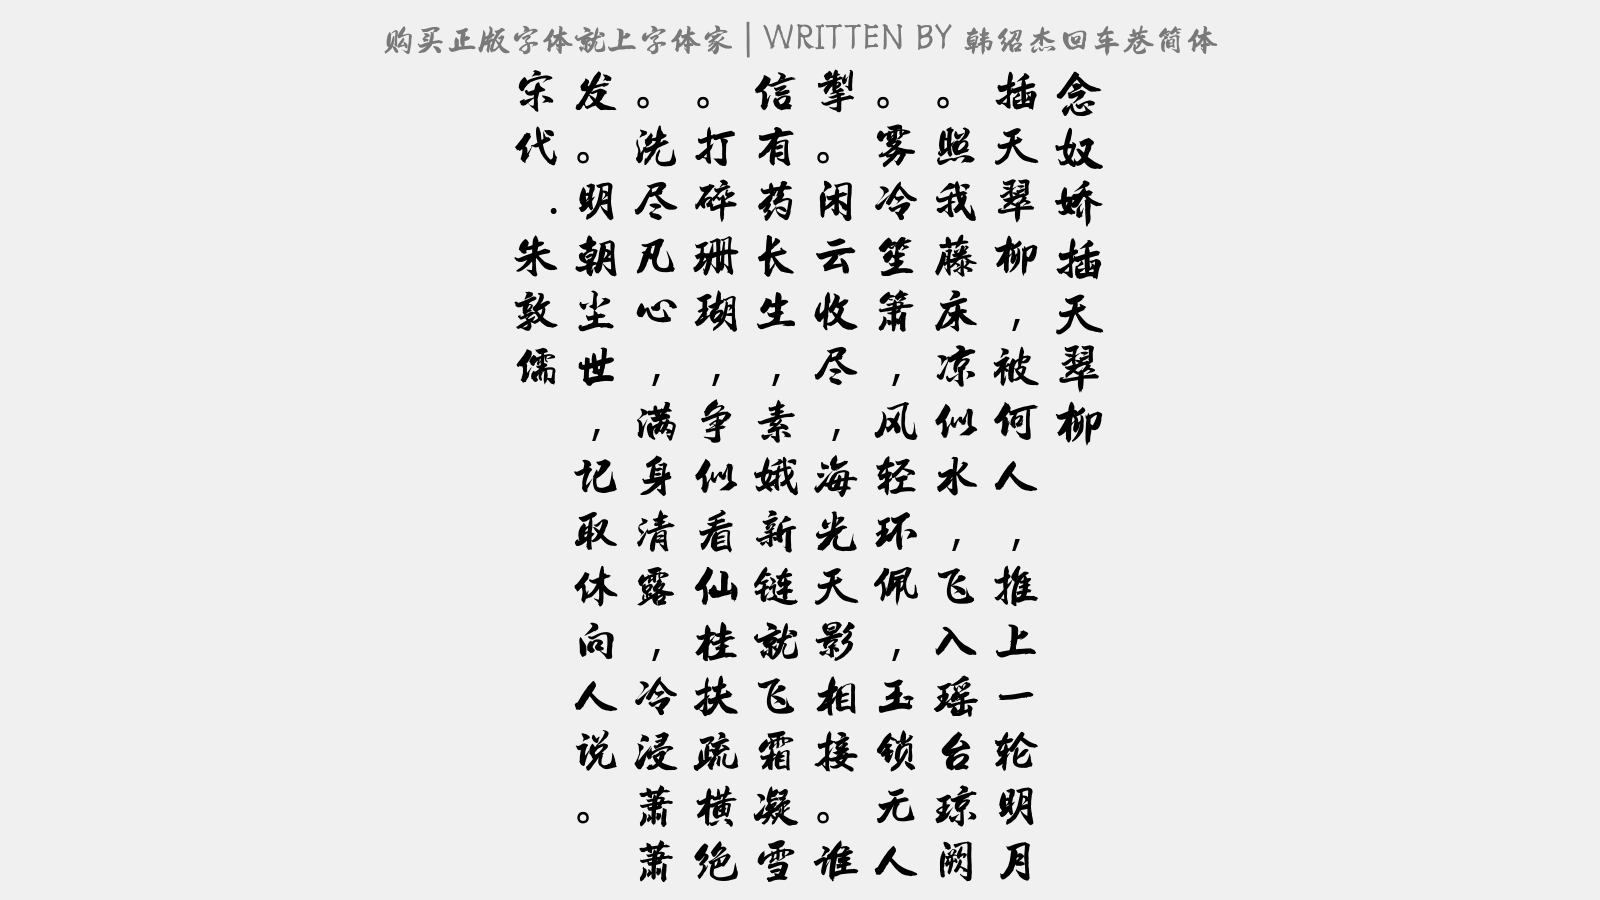 购买正版字体就上字体家 | WRITTEN BY 韩绍杰回车巷简体
念奴娇插天翠柳
插天翠柳，被何人，推上一轮明月
。照我藤床凉似水，飞入瑶台琼阙
。雾冷笙箫，风轻环佩，玉锁无人
掣。闲云收尽，海光天影相接。谁
信有药长生，素娥新链就飞霜凝雪
。打碎珊瑚，争似看仙桂扶疏横绝
。洗尽凡心，满身清露，冷浸萧萧
发。明朝尘世，记取休向人说。
宋代.朱敦儒